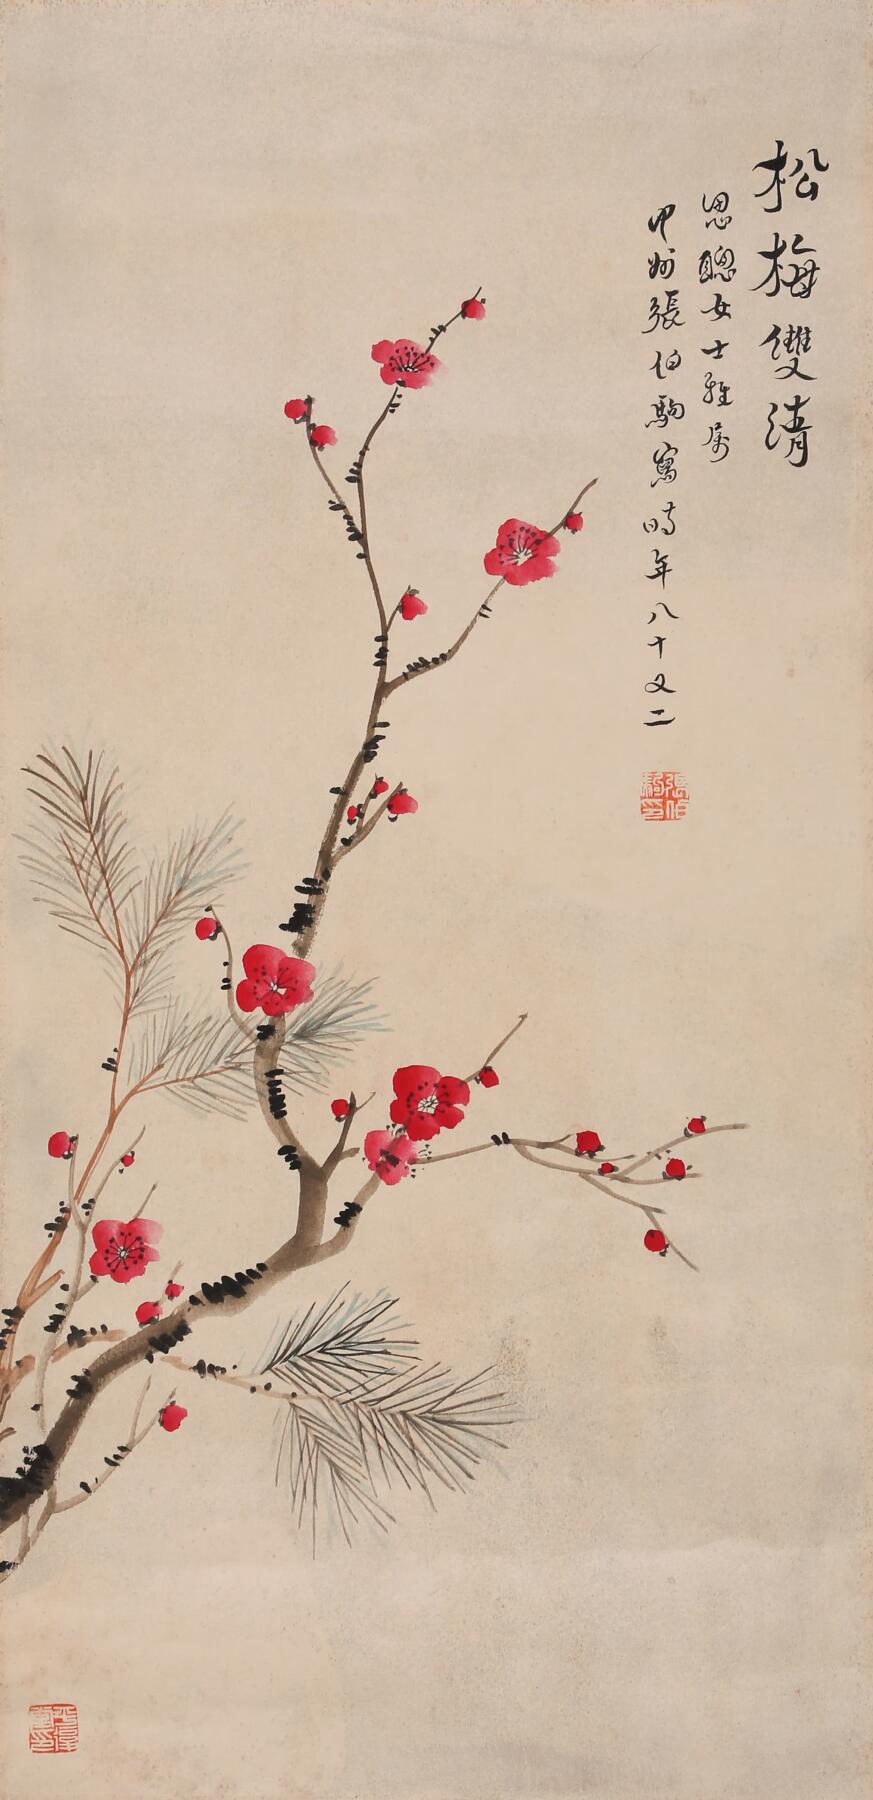 松梅雙清
思聰女士雅属
中州張伯駒寫時年八十又二
張伯駒印